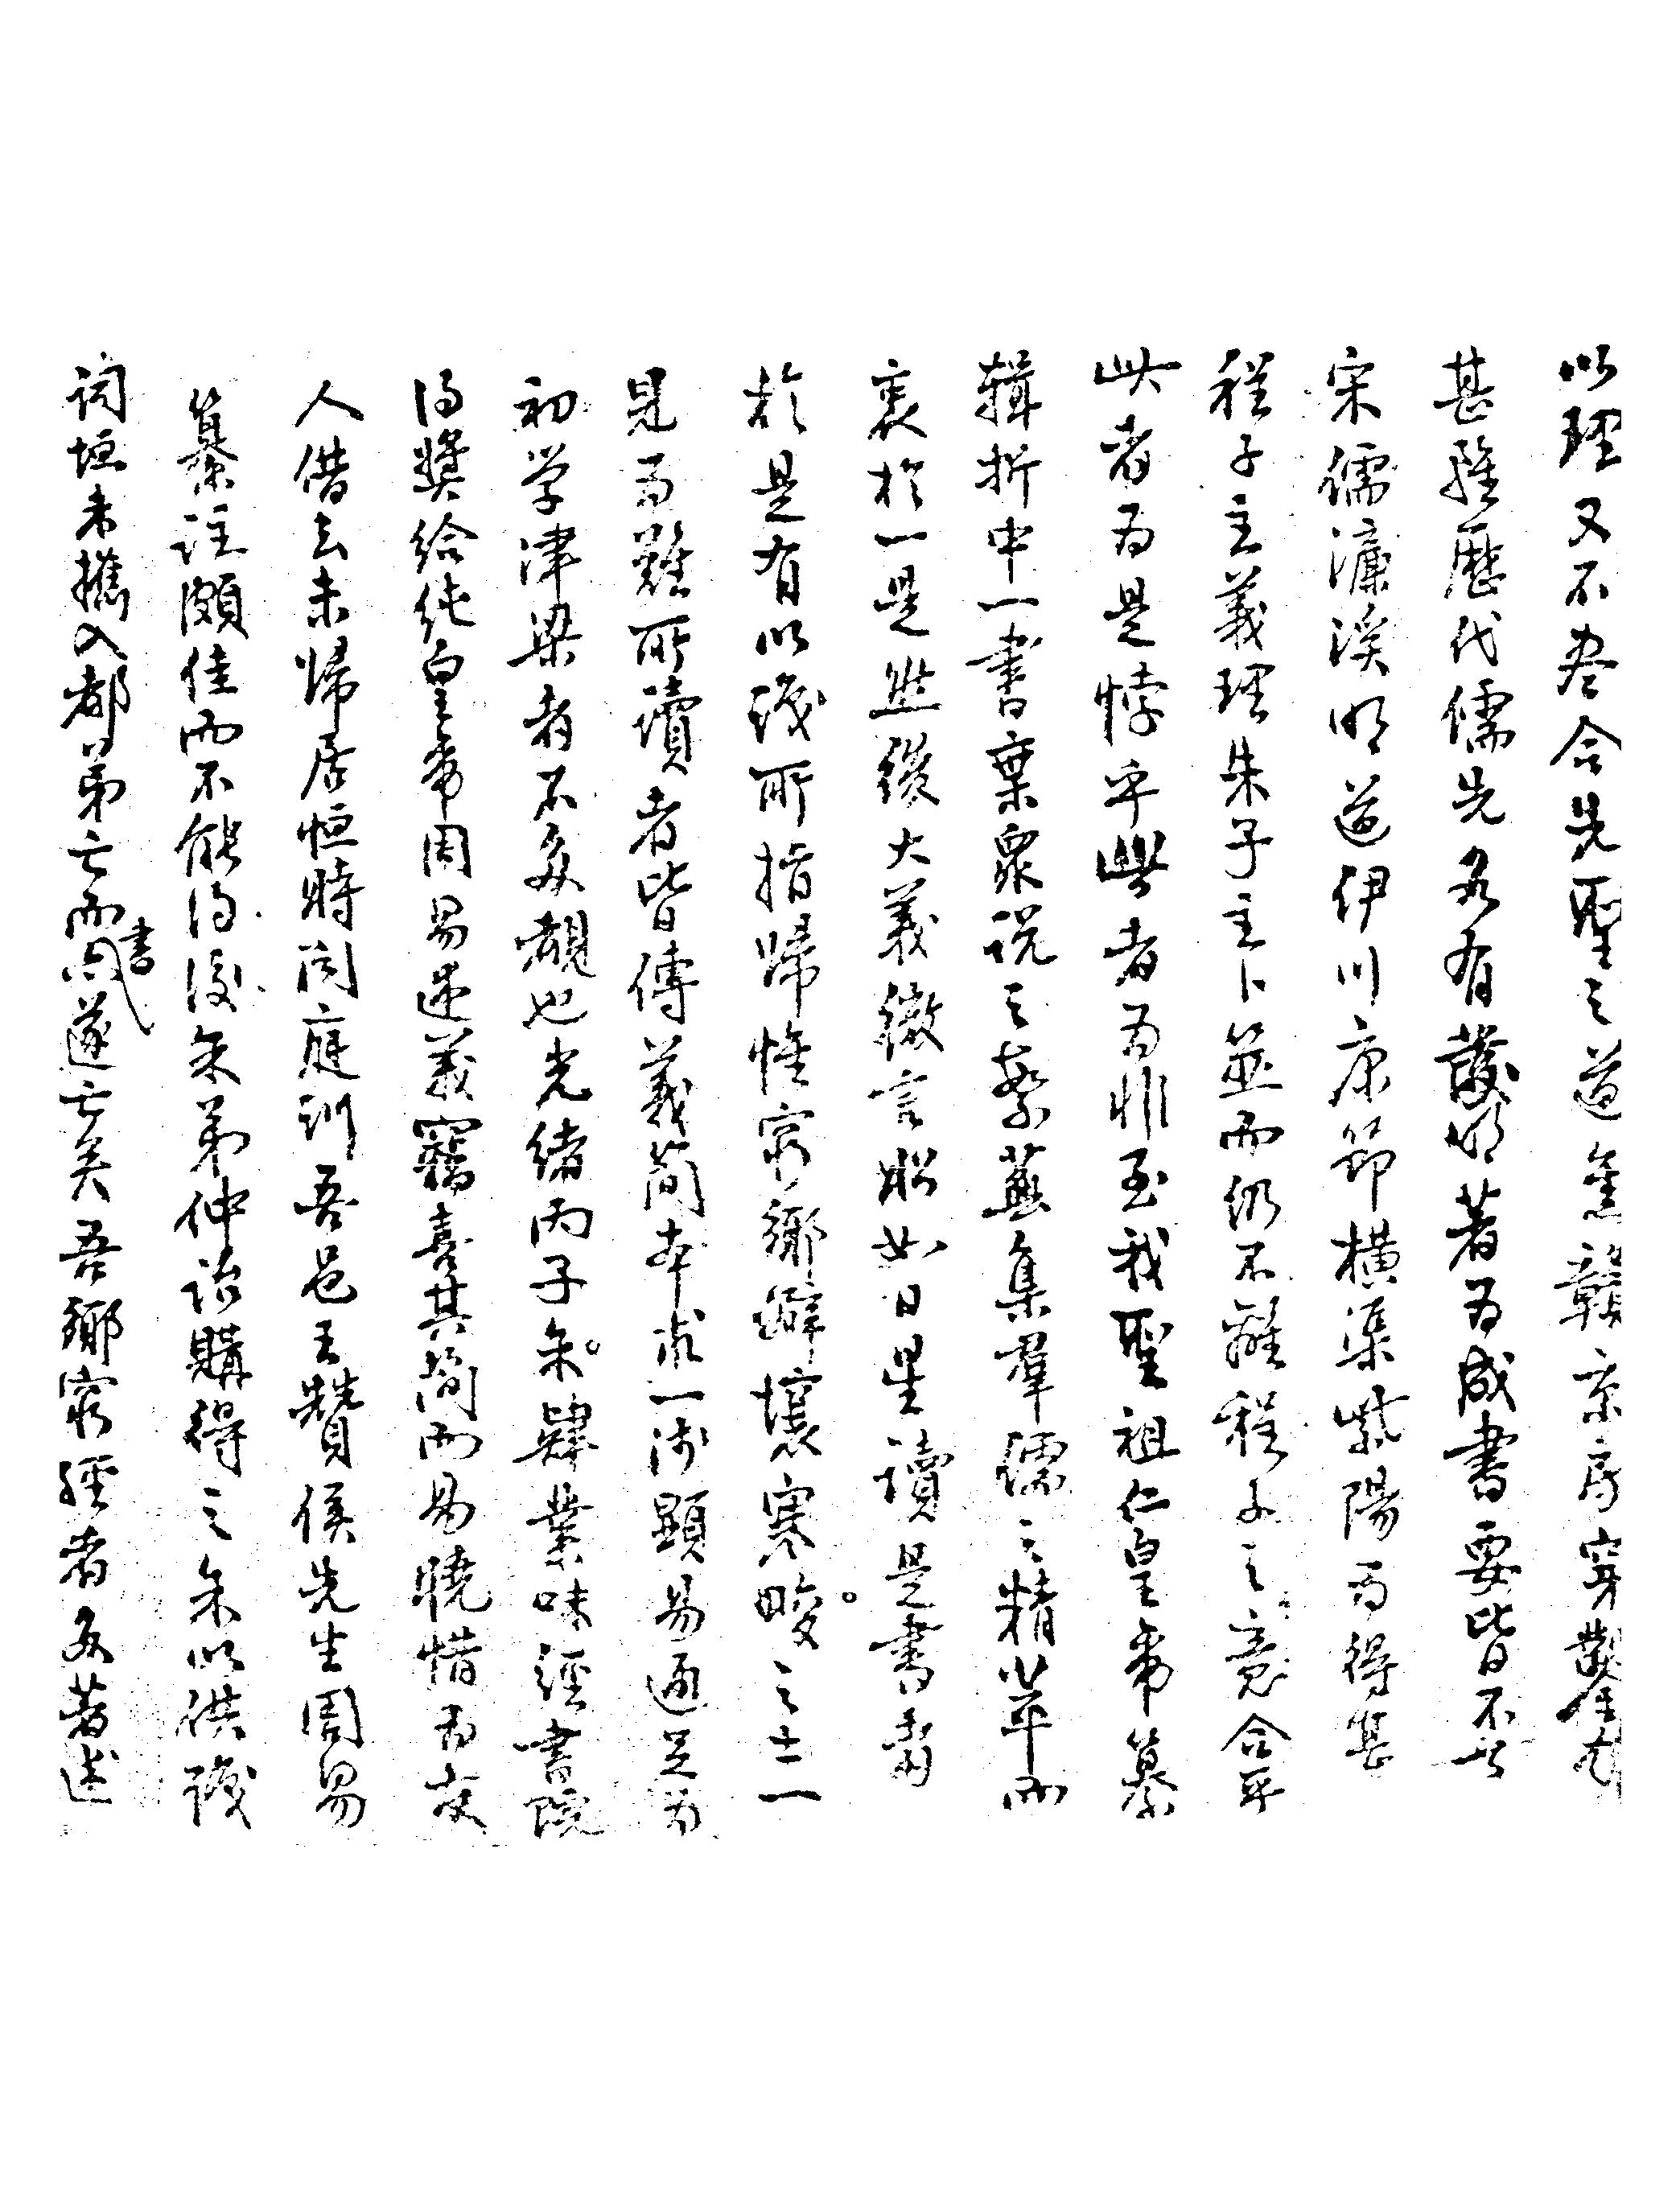 以理又不盡合先聖之道焦贛京房穿鑿尤
甚雖歷代儒先各有發明著為成書要皆不如
宋儒濂溪明道伊川康節橫渠紫陽為得其
程子主義理朱子主卜筮而仍不離程子之意合乎
此者為是悖乎此者為非至我聖祖仁皇帝纂
輯折中一書棄眾說之繁蕪集羣儒之精華而
衷於一是然後大義微言昭如日星讀是書者
於是有以識所指歸惟窮鄉僻壤寒畯之士一
見為難所讀者皆傳義簡本求一淺顯易通足為
初学津梁者不多覯也光緒丙子余肄業味經書院
得奬給純皇帝周易述義竊喜其簡而易曉惜為友
人借去未歸居恒時聞庭訓吾邑王贊侯先生周易
纂註頗佳而不能得後余弟仲詒購得之余以供職
詞垣未攜入都弟亡而書遂亡矣吾鄉窮經者多著述